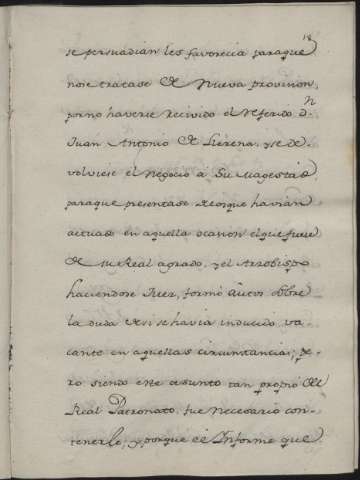 18
se persuadian les favorecia paraque
nose tratase de Nueva provision,
por no haverse recivido el referido Dn
Juan Antonio de Llerena, y se de
volviese el negocio a Su Magestad,
paraque presentase de los que havian
actuas en aquella ocasion el que fuese
de su Real agrado, y el Arzobispo
haciendose Juez, formó Autos sobre
la duda de si se havia inducido va
cante en aquellas circunstancias; pe-
ro siendo este asunto tan propio del
Real Patronato, fue necesario con-
tenerle, y porque el Informe que